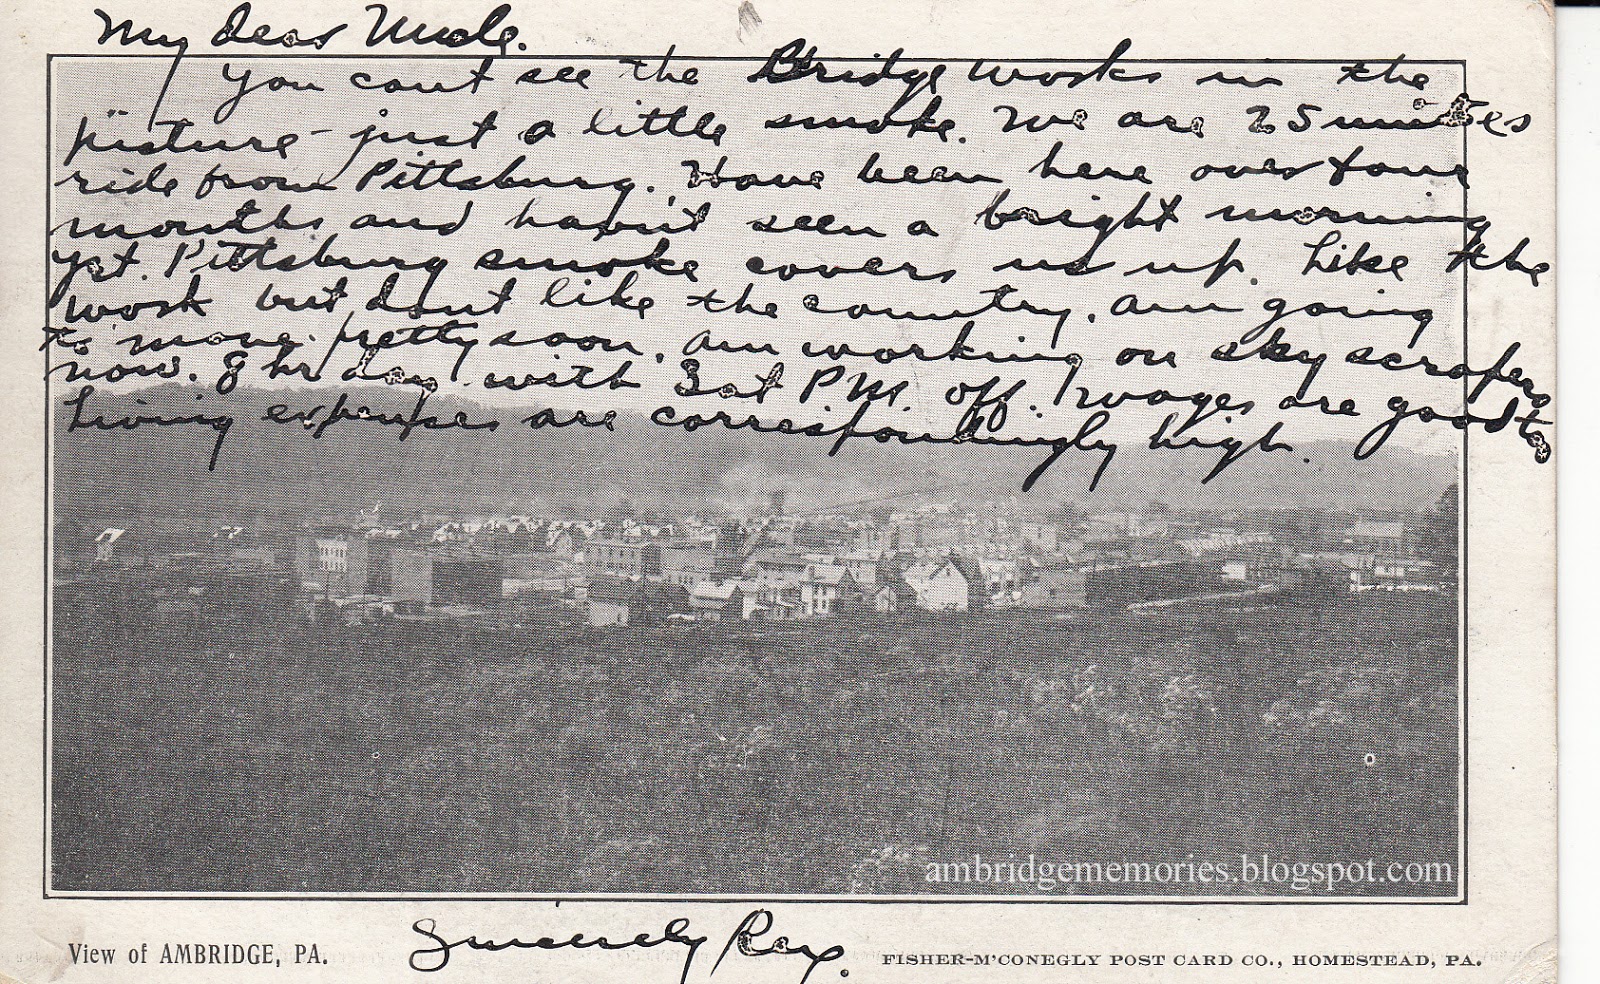 My dear Uncle.
You cant see the Bridge works in the
picture - just a little smoke. We are 25 minutes
ride from Pittsburg. Have been here over four
months and havn't seen a bright morning
yet. Pittsburg smoke covers us up. Like the
work but dont like the country. Am going
to move pretty soon. Am working on sky scrapers
now. 8 hr day with Sat PM. off. Wages are good &
Living expenses are correspondingly high.
ambridgememories.blogspot.com
Sincerely Ray.
View of AMBRIDGE, PA.
FISHER-M'CONEGLY POST CARD CO., HOMESTEAD, PA.